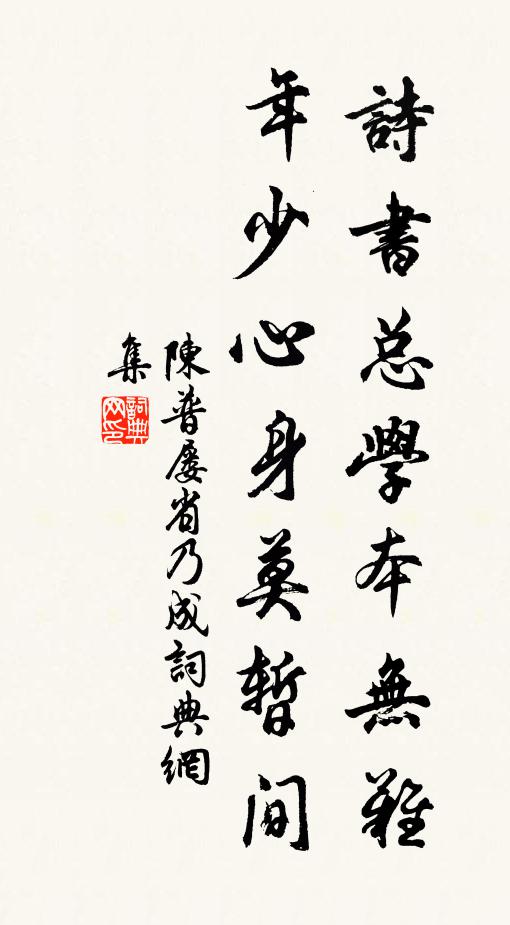 詩書总學本無難
年少心身莫暫间
陳普屡省乃成詞典網
集
詞典
网印